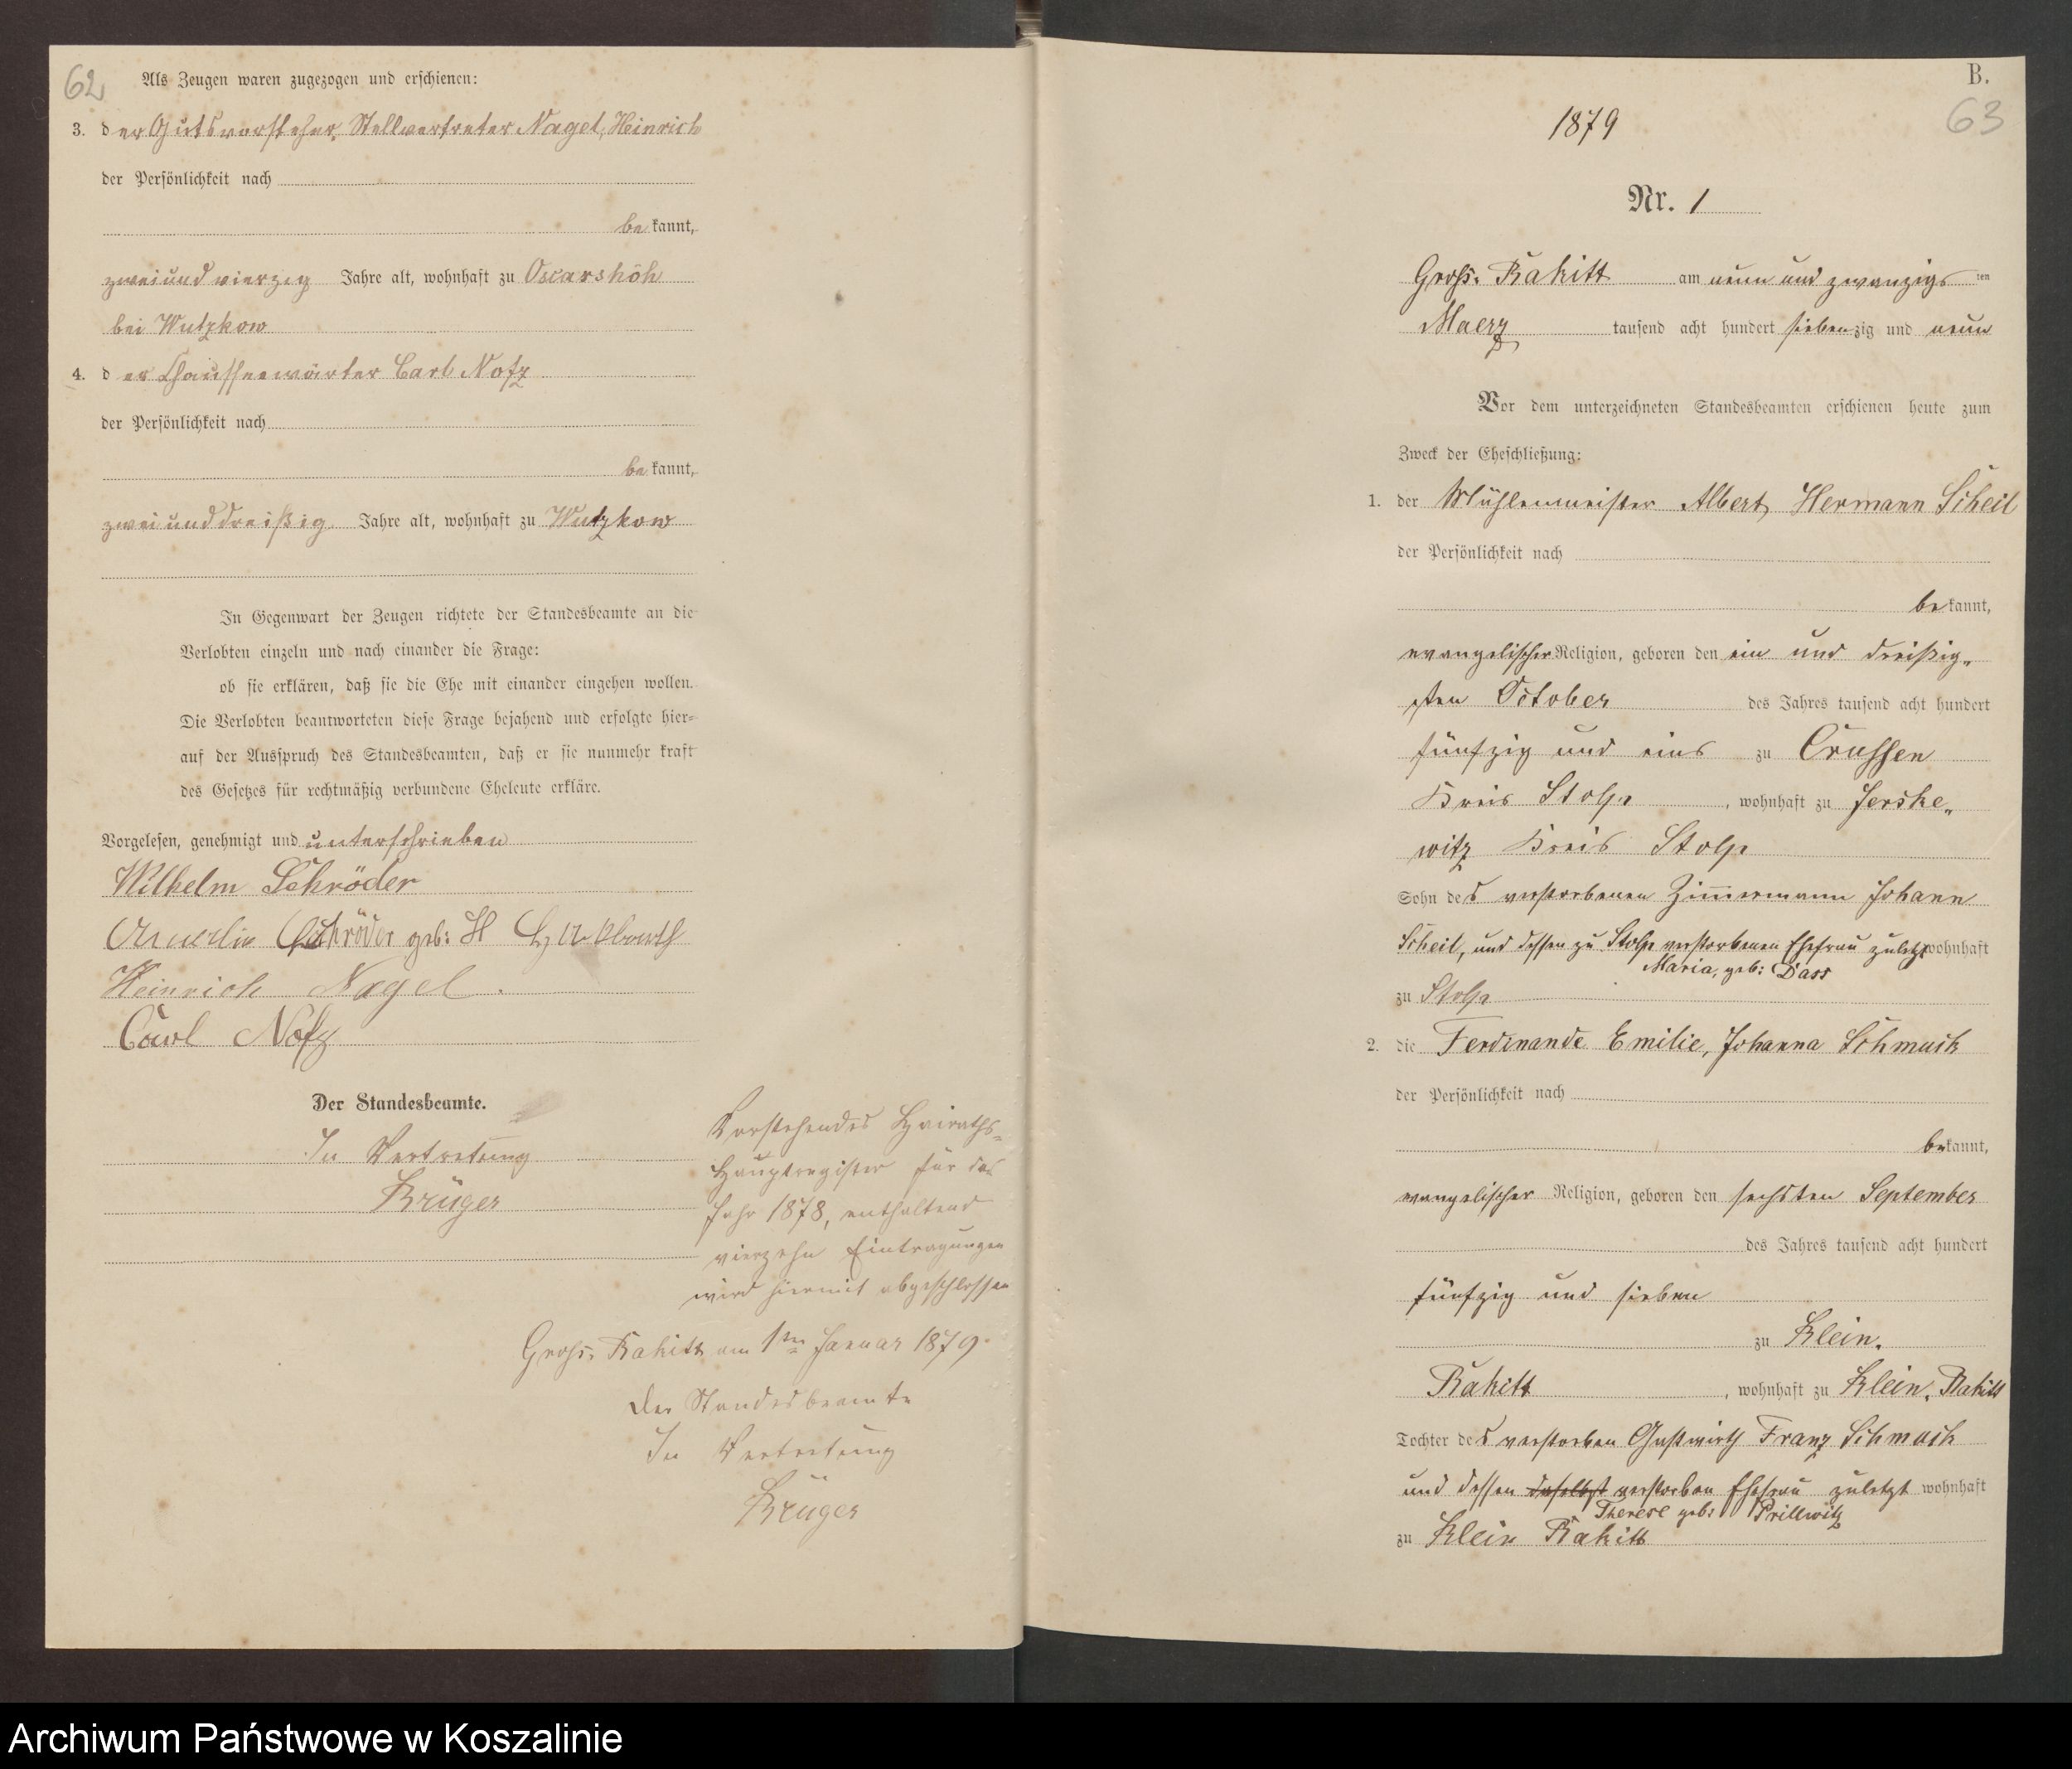 62
Als Zeugen waren zugezogen und erschienen:
3. der Gutsvorsteher, Stellvertreter Nagel, Heinrich
der Persönlichkeit nach
bekannt,
zweiundvierzig Jahre alt, wohnhaft zu Oscarshöh
bei Wutzkow
4. der Chausseewärter Carl Notz
der Persönlichkeit nach
bekannt,
zweiunddreißig Jahre alt, wohnhaft zu Wutzkow
In Gegenwart der Zeugen richtete der Standesbeamte an die
Verlobten einzeln und nach einander die Frage:
ob sie erklären, daß sie die Ehe mit einander eingehen wollen.
Die Verlobten beantworteten diese Frage bejahend und erfolgte hier=
auf der Ausspruch des Standesbeamten, daß er sie nunmehr kraft
des Gesetzes für rechtmäßig verbundene Eheleute erkläre.
Vorgelesen, genehmigt und unterschrieben
Wilhelm Schröder
Schröder geb:
Heinrich Nagel.
Carl Notz
Der Standesbeamte.
In Vertretung
Krüger
Vorstehendes Heiraths=
Hauptregister für das
Jahr 1878, enthaltend
vierzehn Eintragungen
wird hiermit abgeschlossen
Gross. Rakitt am 1ten Januar 1879.
Der Standesbeamte
In Vertretung
Krüger
B.
63
1879
Nr. 1
Gross. Rakitt am neun und zwanzigsten
Maerz tausend acht hundert siebenzig und neun
Vor dem unterzeichneten Standesbeamten erschienen heute zum
Zweck der Eheschließung:
1. der Mühlenmeister Albert, Hermann Scheil
der Persönlichkeit nach
bekannt,
evangelischer Religion, geboren den ein und dreißig„
sten October des Jahres tausend acht hundert
fünfzig und eins zu Crussen
Kreis Stolp, wohnhaft zu Jerske„
witz Kreis Stolp
Sohn des verstorbenen Zimmermann Johann
Scheil, und dessen zu Stolp verstorbenen Ehefrau zuletzt wohnhaft
Maria, geb: Dass
zu Stolp
2. die Ferdinande Emilie, Johanna Schmuck
der Persönlichkeit nach
bekannt,
evangelischer Religion, geboren den sechsten September
des Jahres tausend acht hundert
fünfzig und sieben
zu Klein.
Rakitt, wohnhaft zu Klein. Rakitt
Tochter des verstorben Gastwirth Franz Schmuck
und dessen daselbst verstorben Ehefrau zuletzt wohnhaft
Therese geb: Prillwitz
zu Klein Rakitt
Archiwum Państwowe w Koszalinie